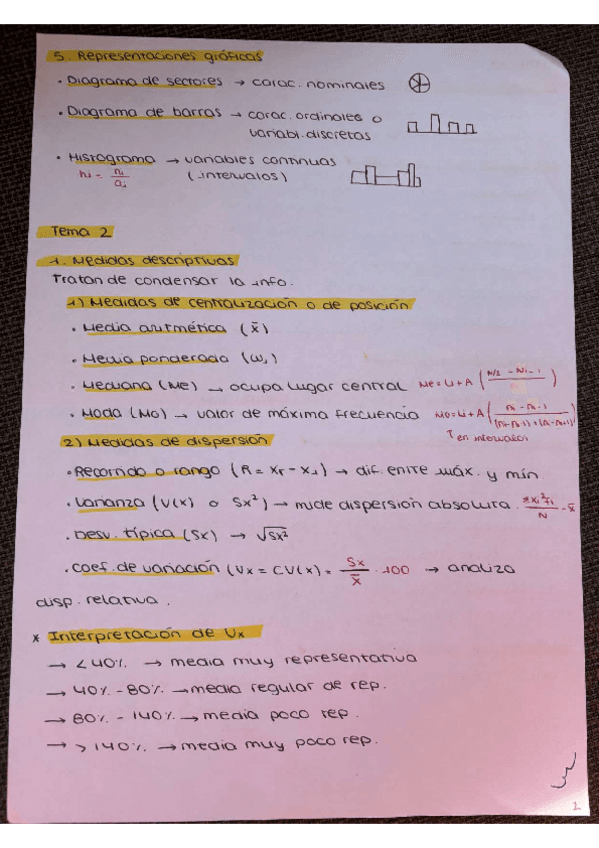 5. Representaciones gráficas
· Diagrama de sectores → carac. nominales
· Diagrama de barras → carac. ordinales o
variabl. discretas
· Histograma → variables continuas
hi = ni/ai (intervalos)
Tema 2
1. Medidas descriptivas
Tratan de condensar la info.
1) Medidas de centralización o de posición
· Media aritmética (x̄)
· Media ponderada (ωi)
· Mediana (Me) → ocupa lugar central Me = Li + A (N/2 - Ni-1
· Moda (Mo) → valor de máxima frecuencia Mo = Li + A (ni - ni-1 / (ni - ni-1) + (ni - ni+1))
↑ en intervalos
2) Medidas de dispersión
· Recorrido o rango (R = xr - x1) → dif. entre máx. y mín
· Varianza (V(x) o Sx²) → mide dispersión absoluta. Σxi²fi/N - x̄
· Desv. típica (Sx) → √Sx²
· Coef. de variación (Vx = CV(x) = Sx/x̄ · 100 → analiza
disp. relativa.
* Interpretación de Vx
→ < 40% → media muy representativa
→ 40% - 80% → media regular de rep.
→ 80% - 140% → media poco rep.
→ > 140% → media muy poco rep.
1